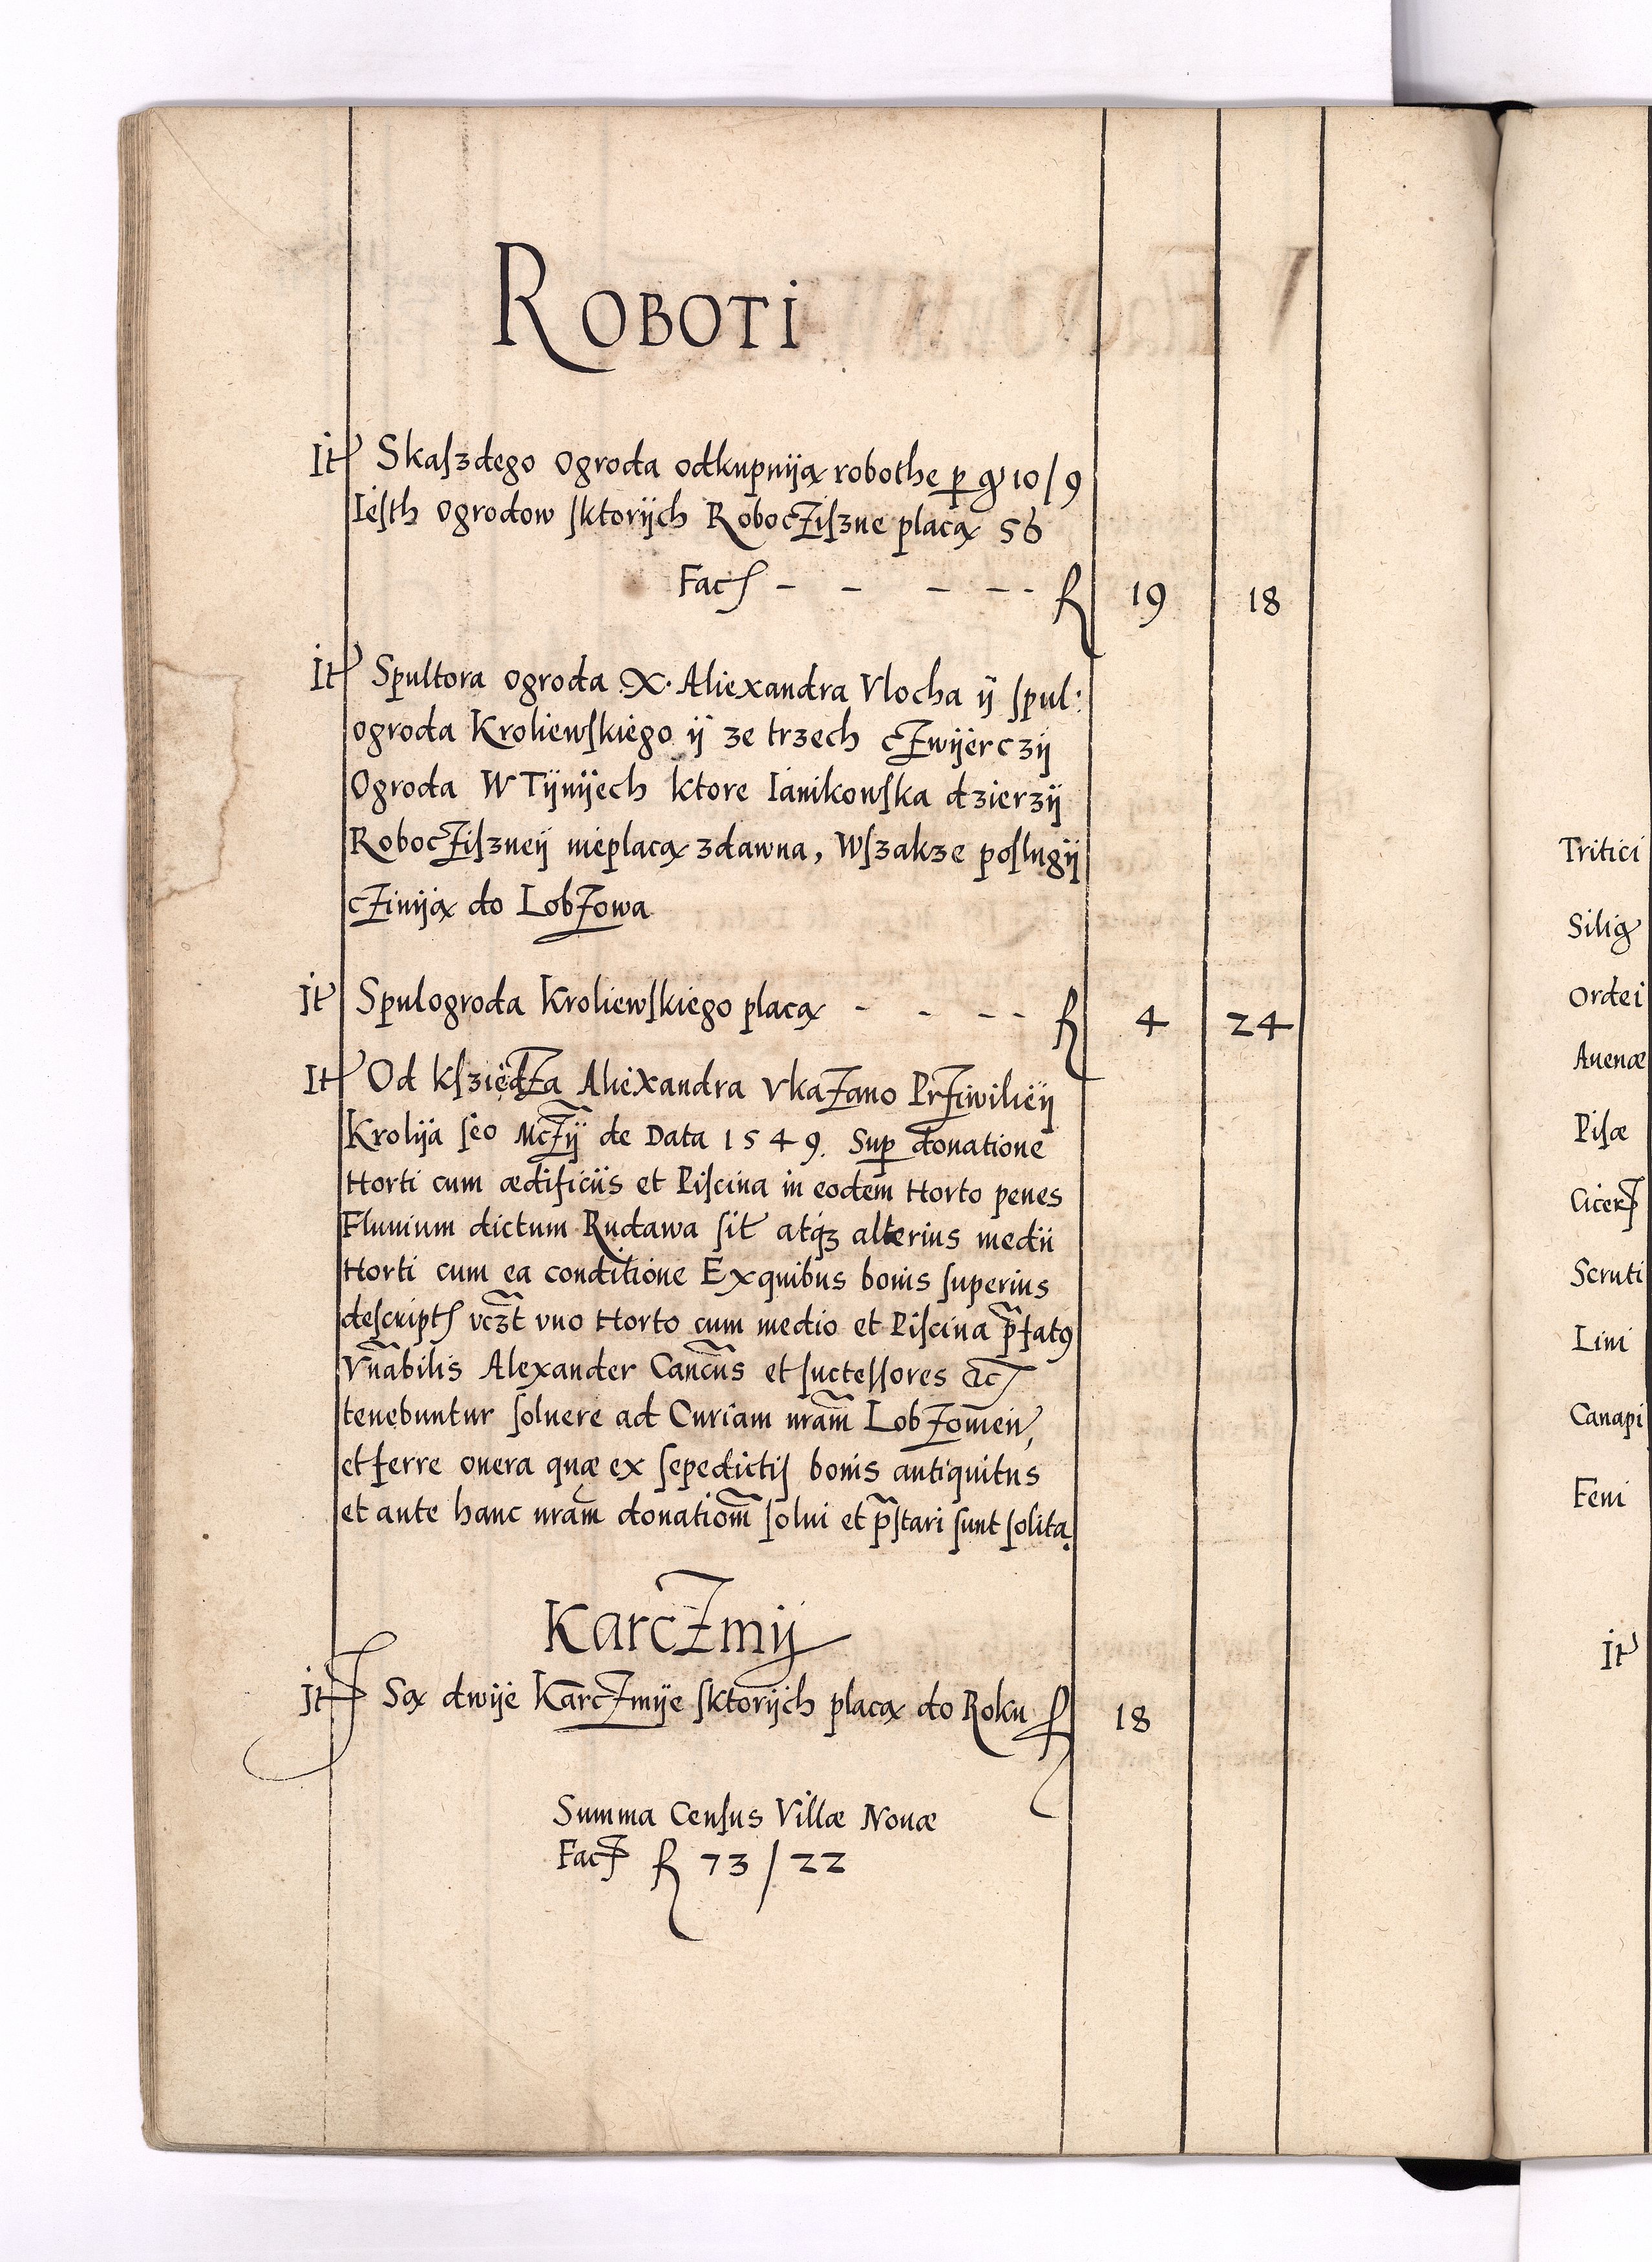 Roboti
It Skaſzdego ogroda odkupnija̧ robothe p gͬ 10/9
Iesth ogrodow ſktorijch Robocziſzne placa̧ 56
Fact - - - - - f 19 18
It Spultora ogroda X. Aliexandra Vlocha ij ſpul:
ogroda Kroliewſkiego ij ze trzech czwijerczij
Ogroda W Tijnijech ktore Ianikowſka dzierzij
Roboczisznеij nieplaca̧ zdawna, Wſzakze poſlugij
czinija̧ do Lobzowa
It Spulogroda Kroliewſkiego placa̧ - - - - f 4 24
It Od kſziędza Aliexandra vkazano Prziwilieij
Krolija ſeo Mczij de Data 1549. Sup donatione
Horti cum ædificiis et Piſcina in eodem Horto penes
Fluuium dictum Rudawa ſit atq3 alterius medii
Horti cum ea conditione Exquibus bonis ſuperius
deſcript vczt vno Horto cum medio et Piſcina p̃fatꝯ
Vñabilis Alexander Cancus et ſucteſſores ac
tenebuntur ſoluere ad Curiam nram̃ Lobzomen,
et ferre onera quæ ex ſepedictiſ bonis antiquitus
et ante hanc nram̃ donatiom̃ ſolui et p̃ſtari ſunt ſolita.
Karczmij
It Sa̧ dwije Karczmije ſktorijch placa̧ do Roku f 18
Summa Cenſus Villæ Nouæ
Fact f 73/22
Tritici
Silig
Ordei
Auenæ
Piſæ
Cicer
Scruti
Lini
Canapi
Feni
It